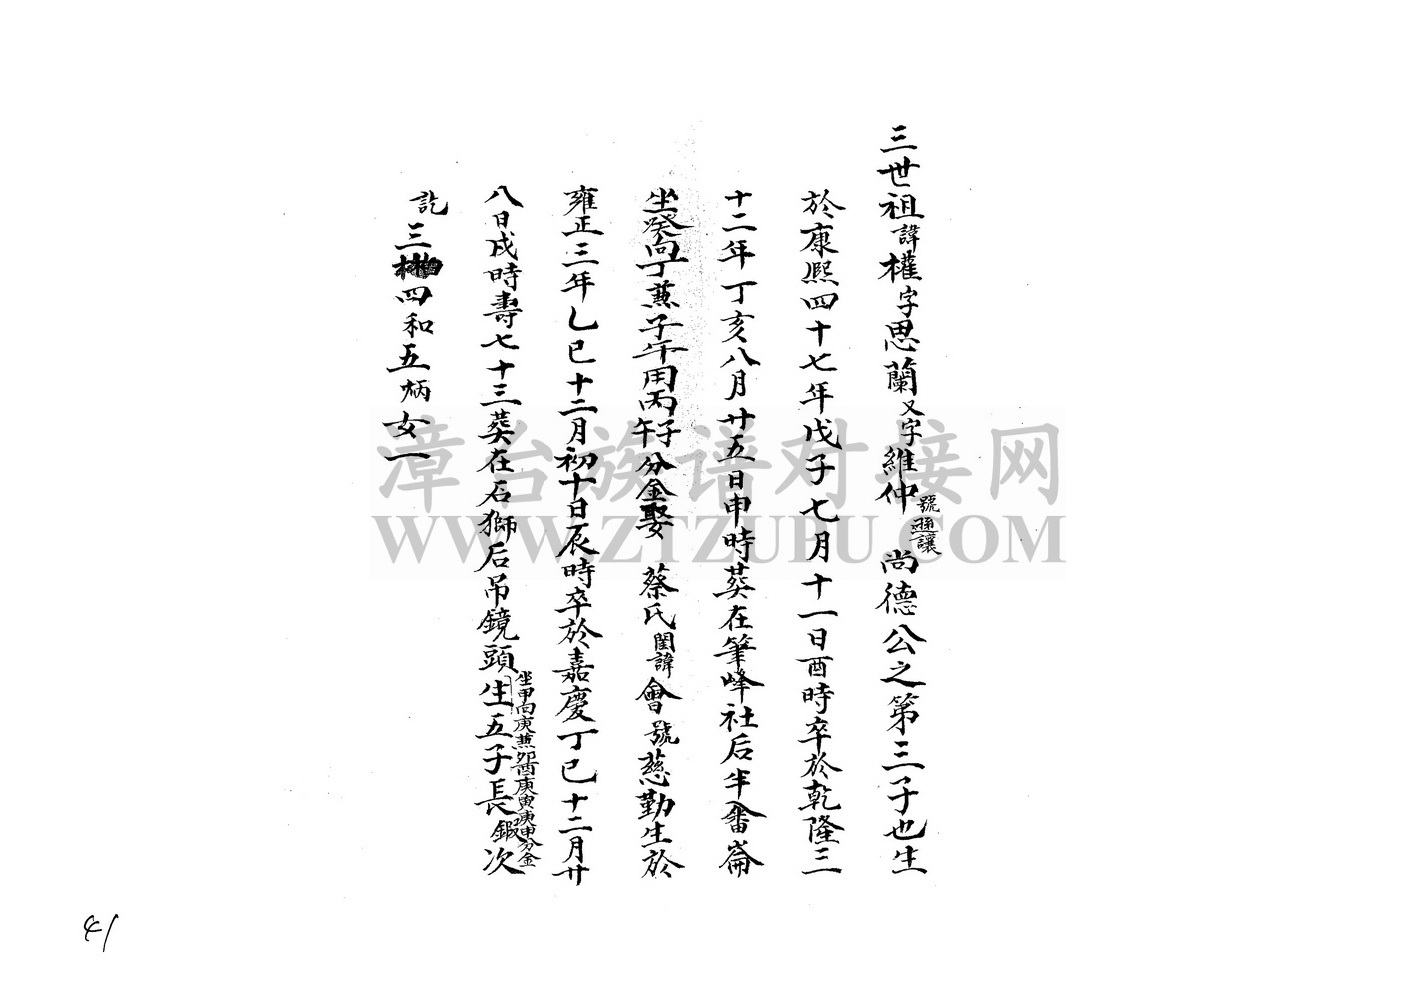 三世祖諱權字思蘭又字維仲號遜讓尚德公之第三子也生
於康熙四十七年戊子七月十一日酉時卒於乾隆三
十二年丁亥八月廿五日申時葬在筆峰社后半畬崙
坐癸向丁兼子午用丙子午分金娶蔡氏閨諱會號慈勤生於
雍正三年乙巳十二月初十日辰時卒於嘉慶丁巳十二月廿
八日戌時壽七十三葬在石獅后吊鏡頭坐甲向庚兼卯酉庚寅庚申分金生五子長鍜次
訖三四和五炳女一
漳台族谱对接网
WWW.ZTZUPU.COM
41